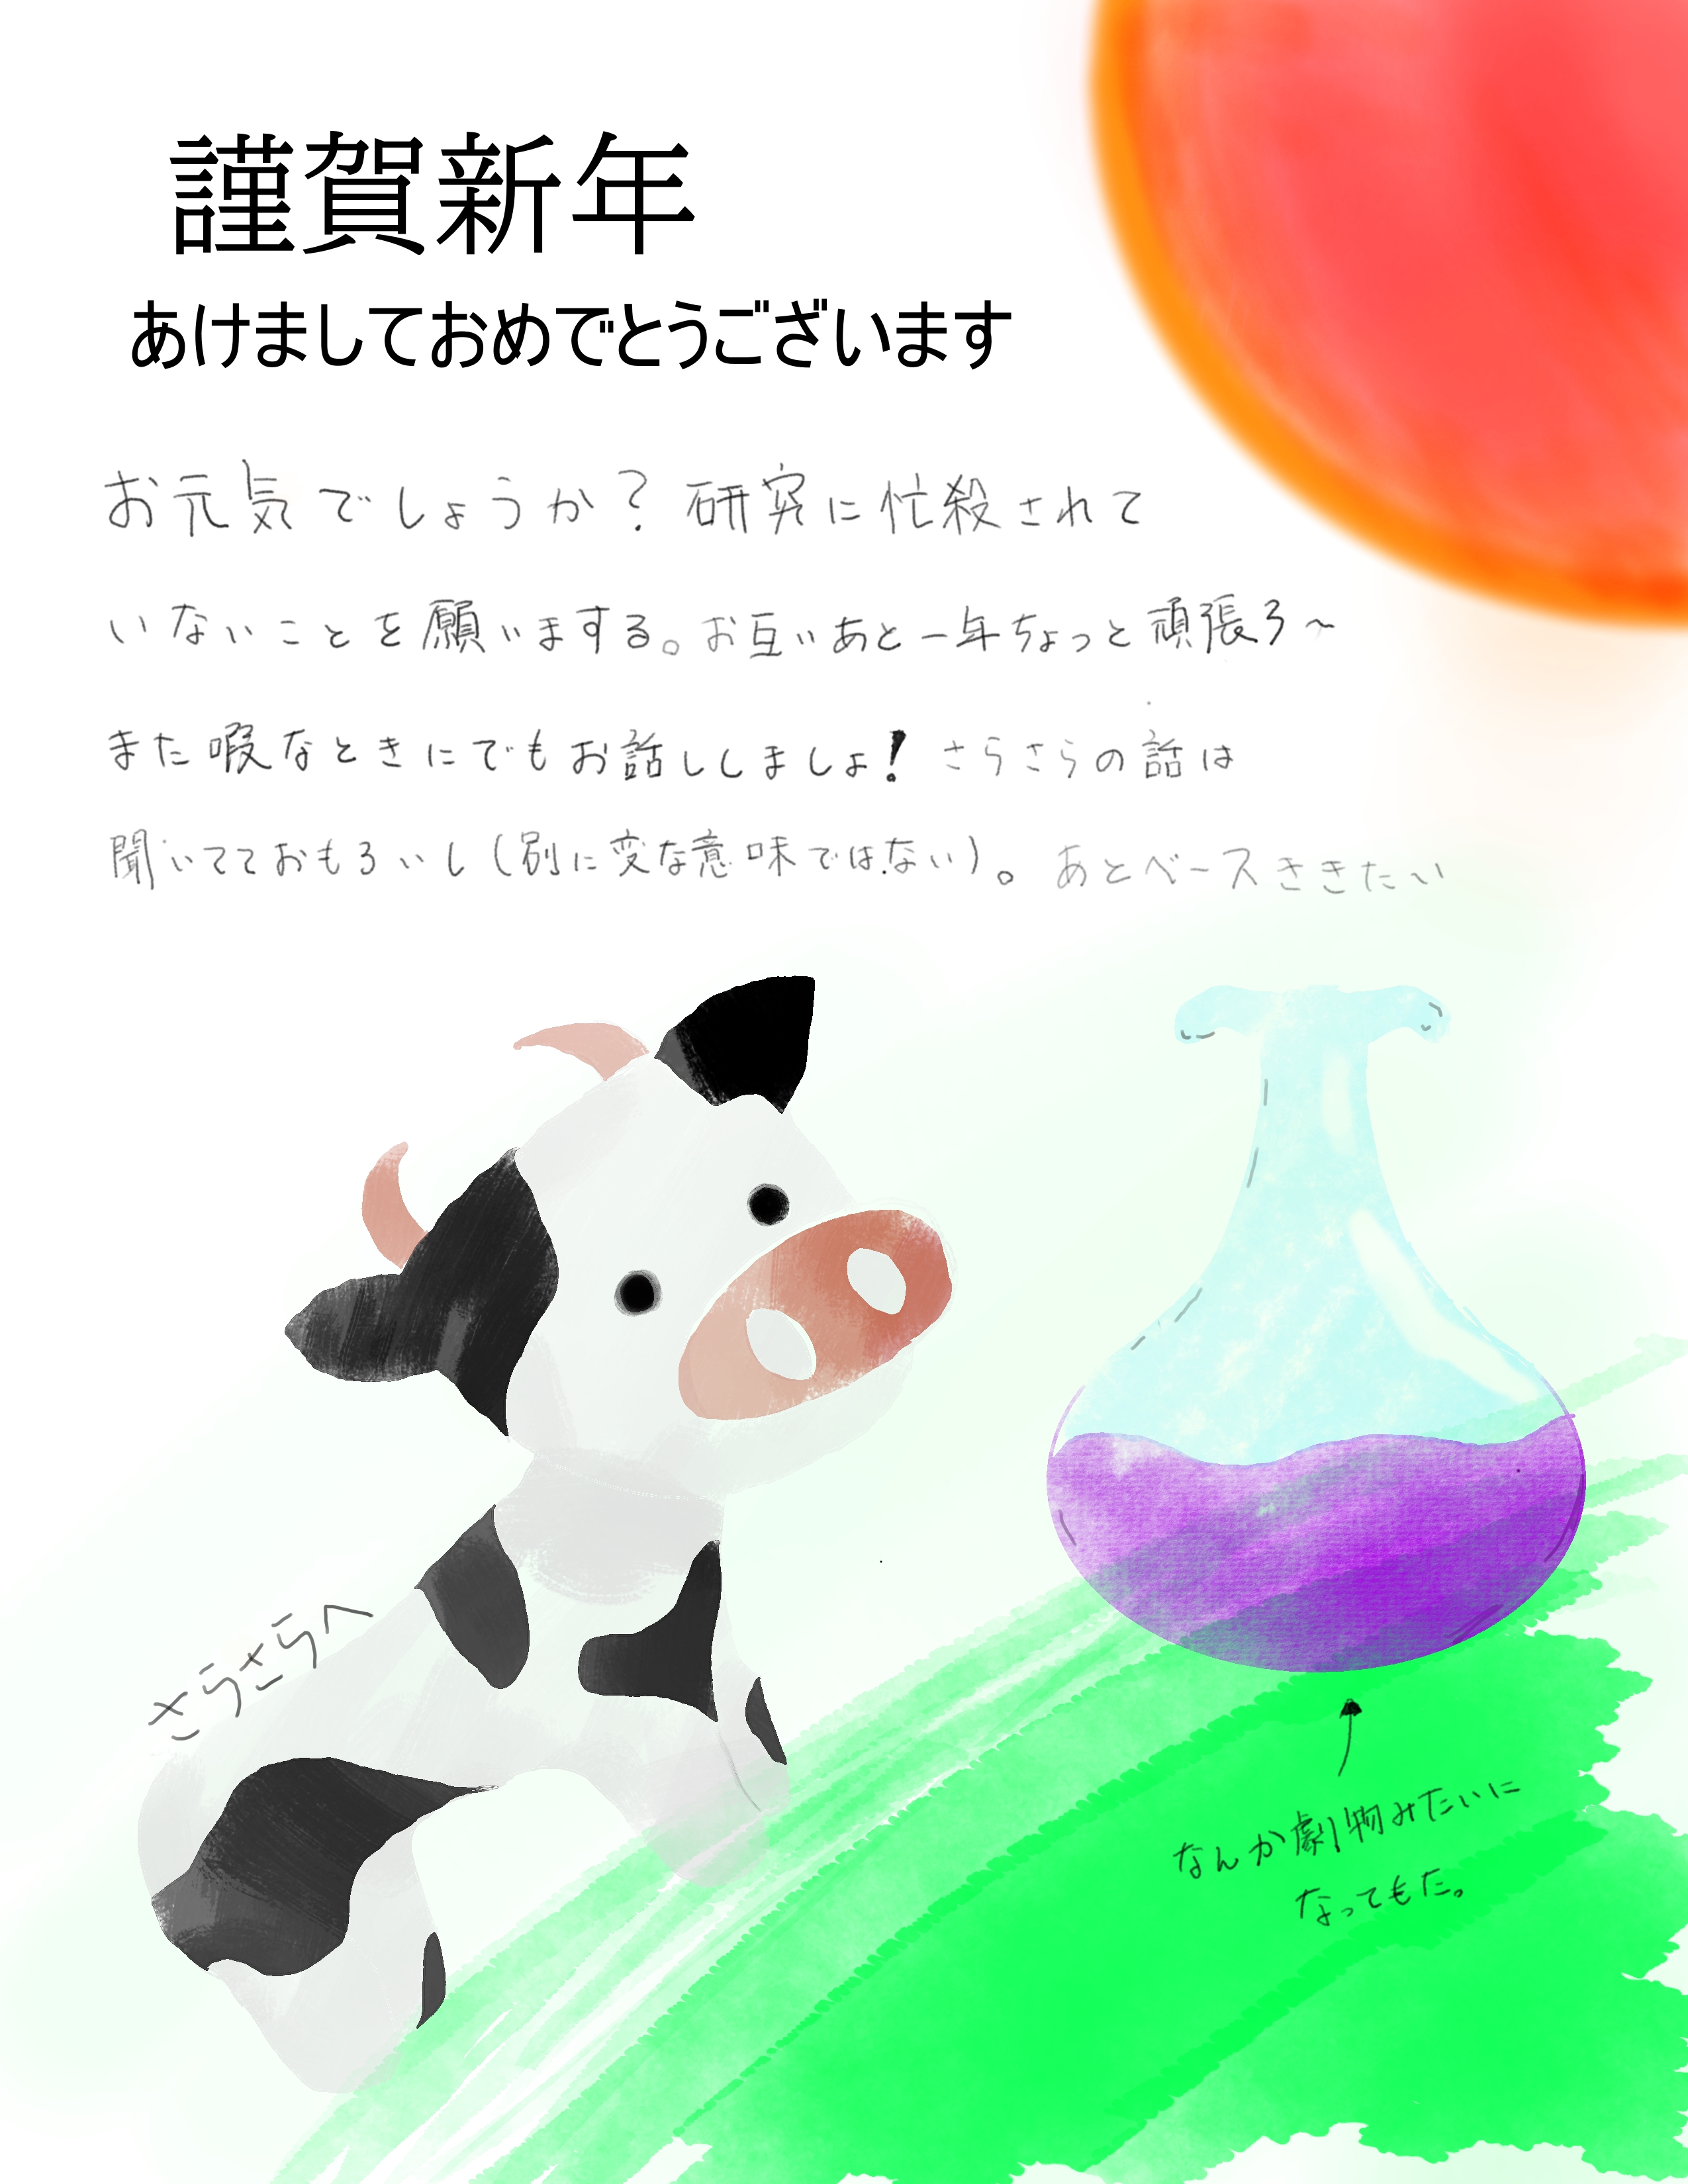 謹賀新年
あけましておめでとうございます
お元気でしょうか？研究に忙殺されて
いないことを願いまする。お互いあと一年ちょっと頑張ろ〜
また暇なときにでもお話ししましょ！さらさらの話は
聞いてておもろいし（別に変な意味ではない）。あとベースききたい
さらさらへ
なんか劇物みたいに
なってもた。